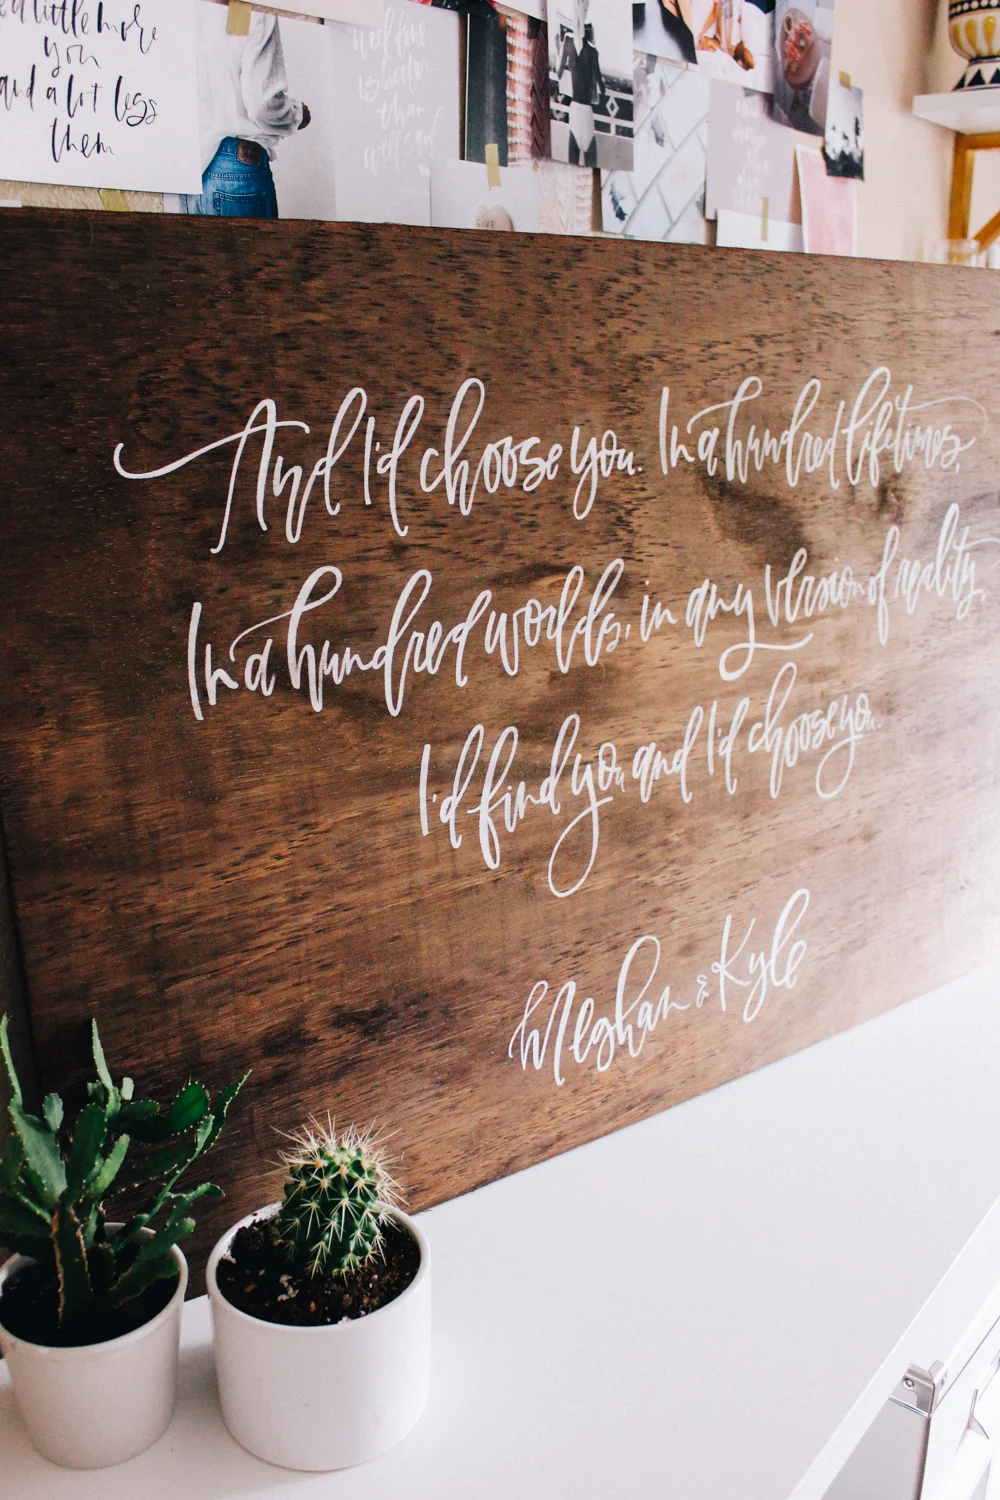 a little more
you
and a lot less
them
GIVE
And I'd choose you. In a hundred lifetimes,
In a hundred worlds, in any version of reality,
I'd find you and I'd choose you.
Meghan & Kyle